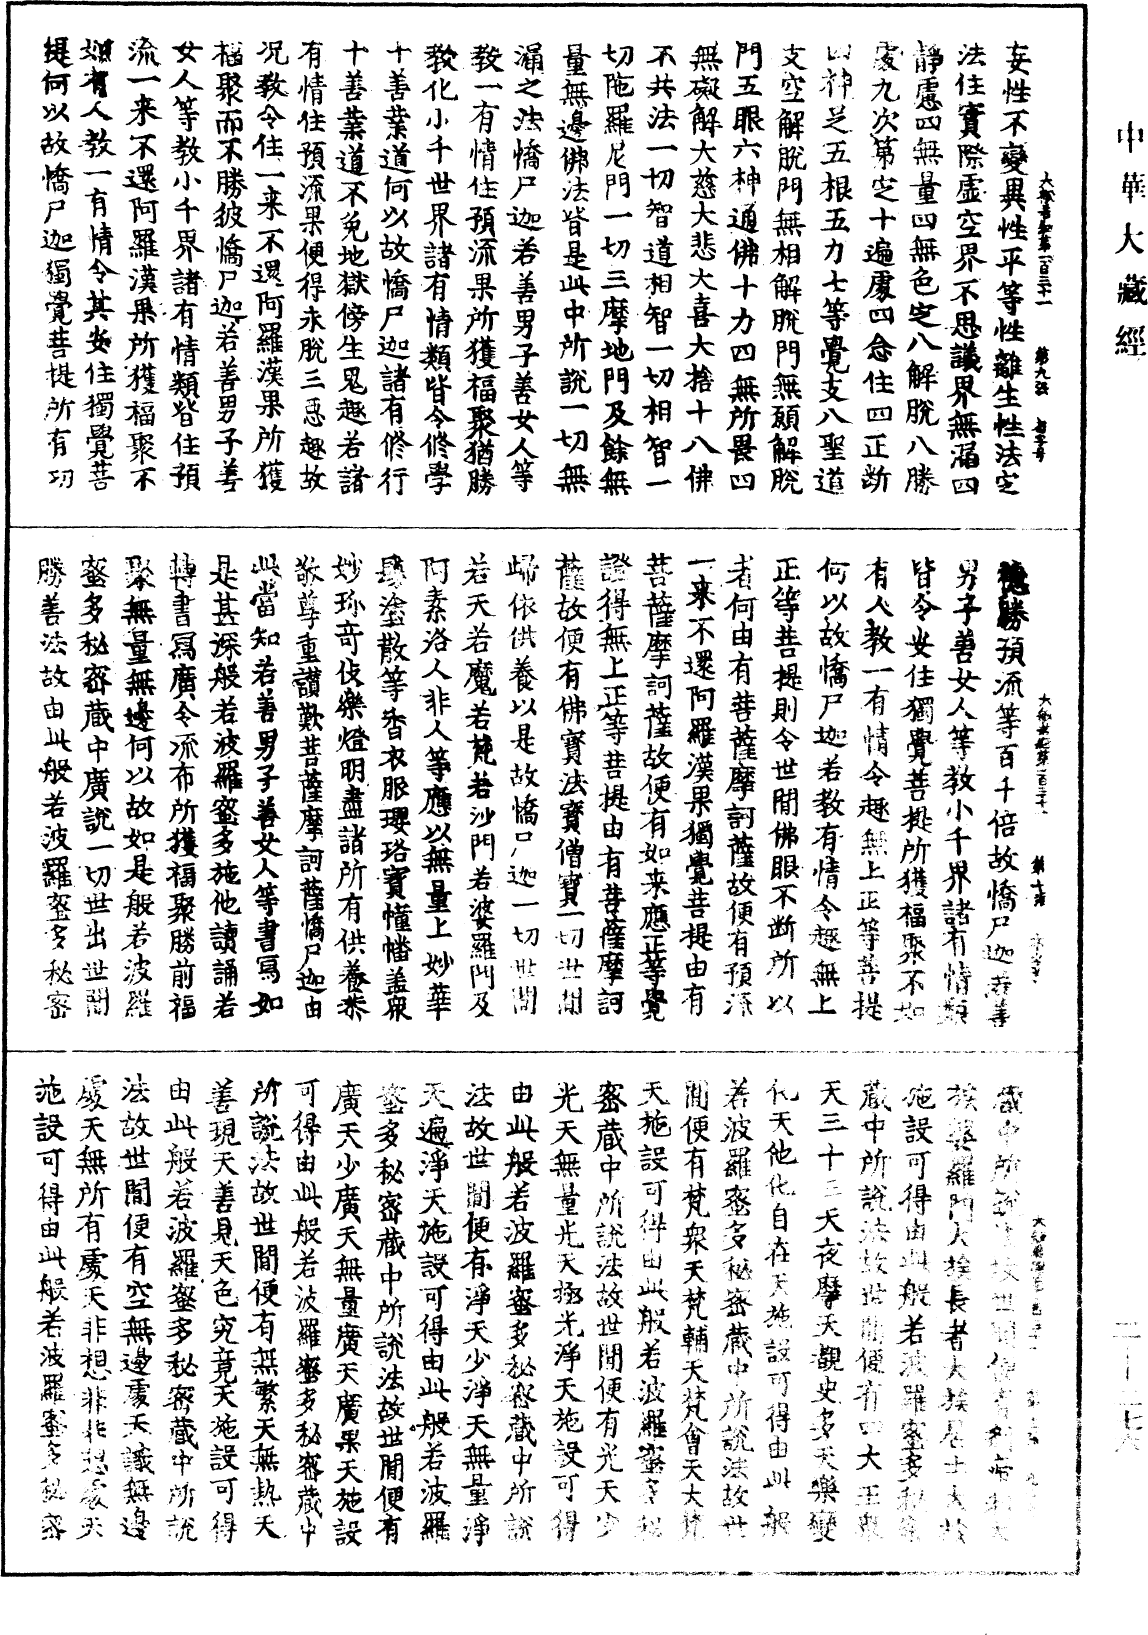 中華大藏經
妄性不變異性平等性離生性法定
法住實際虛空界不思議界無漏四
靜慮四無量四無色定八解脫八勝
處九次第定十遍處四念住四正斷
四神足五根五力七等覺支八聖道
支空解脫門無相解脫門無願解脫
門五眼六神通佛十力四無所畏四
無礙解大慈大悲大喜大捨十八佛
不共法一切智道相智一切相智一
切陁羅尼門一切三摩地門及餘無
量無邊佛法皆是此中所說一切無
漏之法憍尸迦若善男子善女人等
教一有情住預流果所獲福聚猶勝
教化小千世界諸有情類皆令修學
十善業道何以故憍尸迦諸有修行
十善業道不免地獄傍生鬼趣若諸
有情住預流果便得永脫三惡趣故
况教令住一来不還阿羅漢果所獲
福聚而不勝彼憍尸迦若善男子善
女人等教小千界諸有情類皆住預
流一来不還阿羅漢果所獲福聚不
如有人教一有情令其安住獨覺菩
提何以故憍尸迦獨覺菩提所有功
德勝預流等百千倍故憍尸迦若善
男子善女人等教小千界諸有情類
皆令安住獨覺菩提所獲福聚不如
有人教一有情令趣無上正等菩提
何以故憍尸迦若教有情令趣無上
正等菩提則令世間佛眼不斷所以
者何由有菩薩摩訶薩故便有預流
一来不還阿羅漢果獨覺菩提由有
菩薩摩訶薩故便有如来應正等覺
證得無上正等菩提由有菩薩摩訶
薩故便有佛寶法寶僧寶一切世間
歸依供養以是故憍尸迦一切世間
若天若魔若梵若沙門若婆羅門及
阿素洛人非人等應以無量上妙華
鬘塗散等香衣服瓔珞寶幢幡盖衆
妙珎奇伎樂燈明盡諸所有供養恭
敬尊重讃歎菩薩摩訶薩憍尸迦由
此當知若善男子善女人等書寫如
是甚深般若波羅蜜多施他讀誦若
轉書寫廣令流布所獲福聚勝前福
聚無量無邊何以故如是般若波羅
蜜多秘密藏中廣說一切世出世間
勝善法故由此般若波羅蜜多秘密
藏中所說法故世間便有刹帝利大
族婆羅門大族長者大族居士大族
施設可得由此般若波羅蜜多秘密
藏中所說法故世間便有四大王衆
天三十三天夜摩天覩史多天樂變
化天他化自在天施設可得由此般
若波羅蜜多秘密藏中所說法故世
間便有梵衆天梵輔天梵會天大梵
天施設可得由此般若波羅蜜多秘
密藏中所說法故世間便有光天少
光天無量光天極光淨天施設可得
由此般若波羅蜜多秘密藏中所說
法故世間便有淨天少淨天無量淨
天遍淨天施設可得由此般若波羅
蜜多秘密藏中所說法故世間便有
廣天少廣天無量廣天廣果天施設
可得由此般若波羅蜜多秘密藏中
所說法故世間便有無繁天無熱天
善現天善見天色究竟天施設可得
由此般若波羅蜜多秘密藏中所說
法故世間便有空無邊處天識無邊
處天無所有處天非想非非想處天
施設可得由此般若波羅蜜多秘密